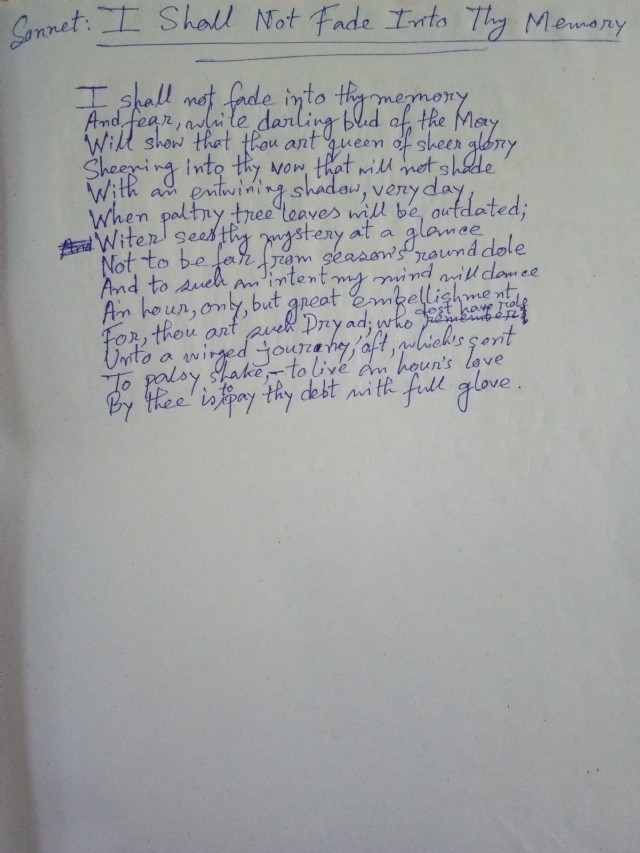 Sonnet: I Shall Not Fade Into Thy Memory
I shall not fade into thy memory
And fear, while darling bud of the May
Will show that thou art queen of sheer glory
Sheening into thy vow that will not shade
With an entwining shadow, very day,
When paltry tree leaves will be outdated;
Witer sees thy mystery at a glance
Not to be far from season's round dole
And to such an intent my mind will dance
An hour, only, but great embellishment
For, thou art such Dryad; who dost have role
Unto a winged journey, oft, which's sent
To palsy shake,- to live an hour's love
By thee is to pay thy debt with full glove.